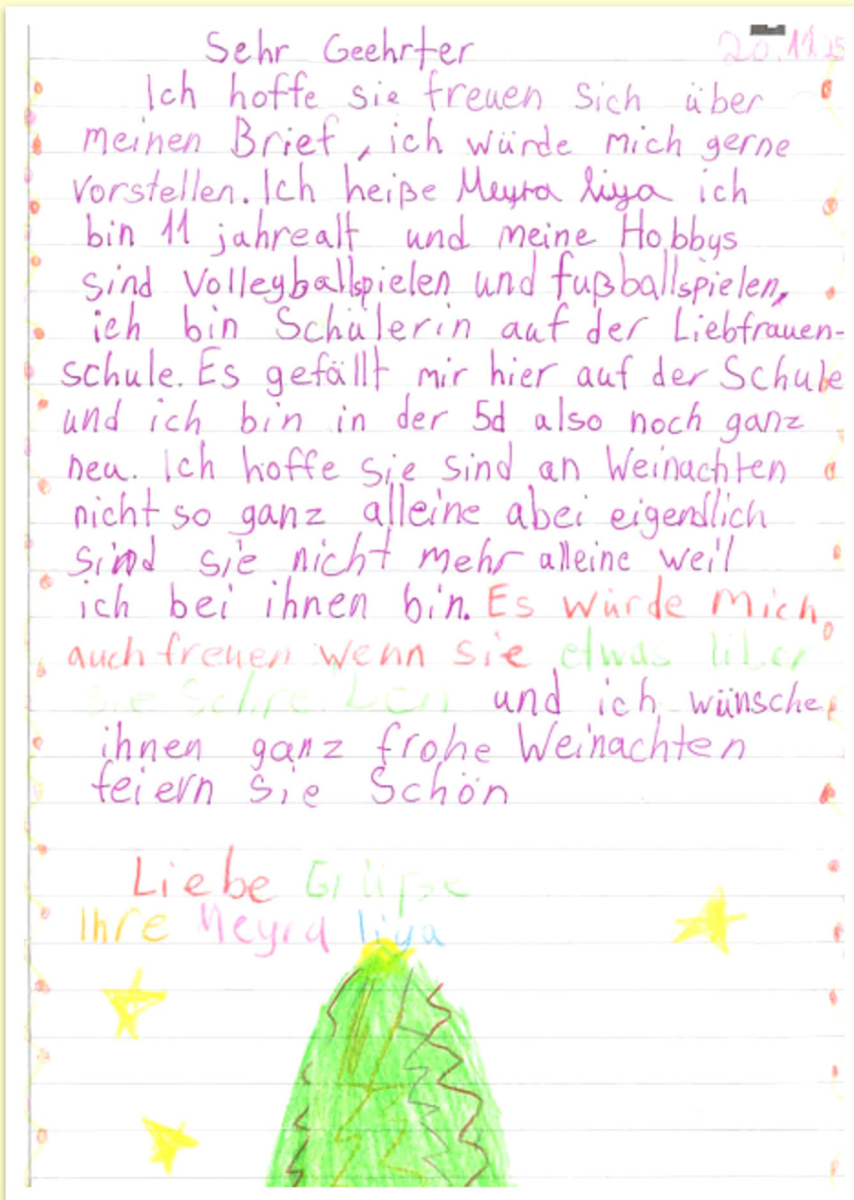 Sehr Geehrter 20.11.25
Ich hoffe sie freuen Sich über
meinen Brief, ich würde mich gerne
vorstellen. Ich heiße Meyra liya ich
bin 11 jahrealt und meine Hobbys
sind Volleyballspielen und fußballspielen,
ich bin Schülerin auf der Liebfrauen-
schule. Es gefällt mir hier auf der Schule
und ich bin in der 5d also noch ganz
neu. Ich hoffe sie sind an Weinachten
nicht so ganz alleine abei eigendlich
sind sie nicht mehr alleine weil
ich bei ihnen bin. Es würde Mich
auch freuen wenn sie etwas über
sie Schreiben und ich wünsche
ihnen ganz frohe Weinachten
feiern sie Schön
Liebe
Ihre Meyra liya